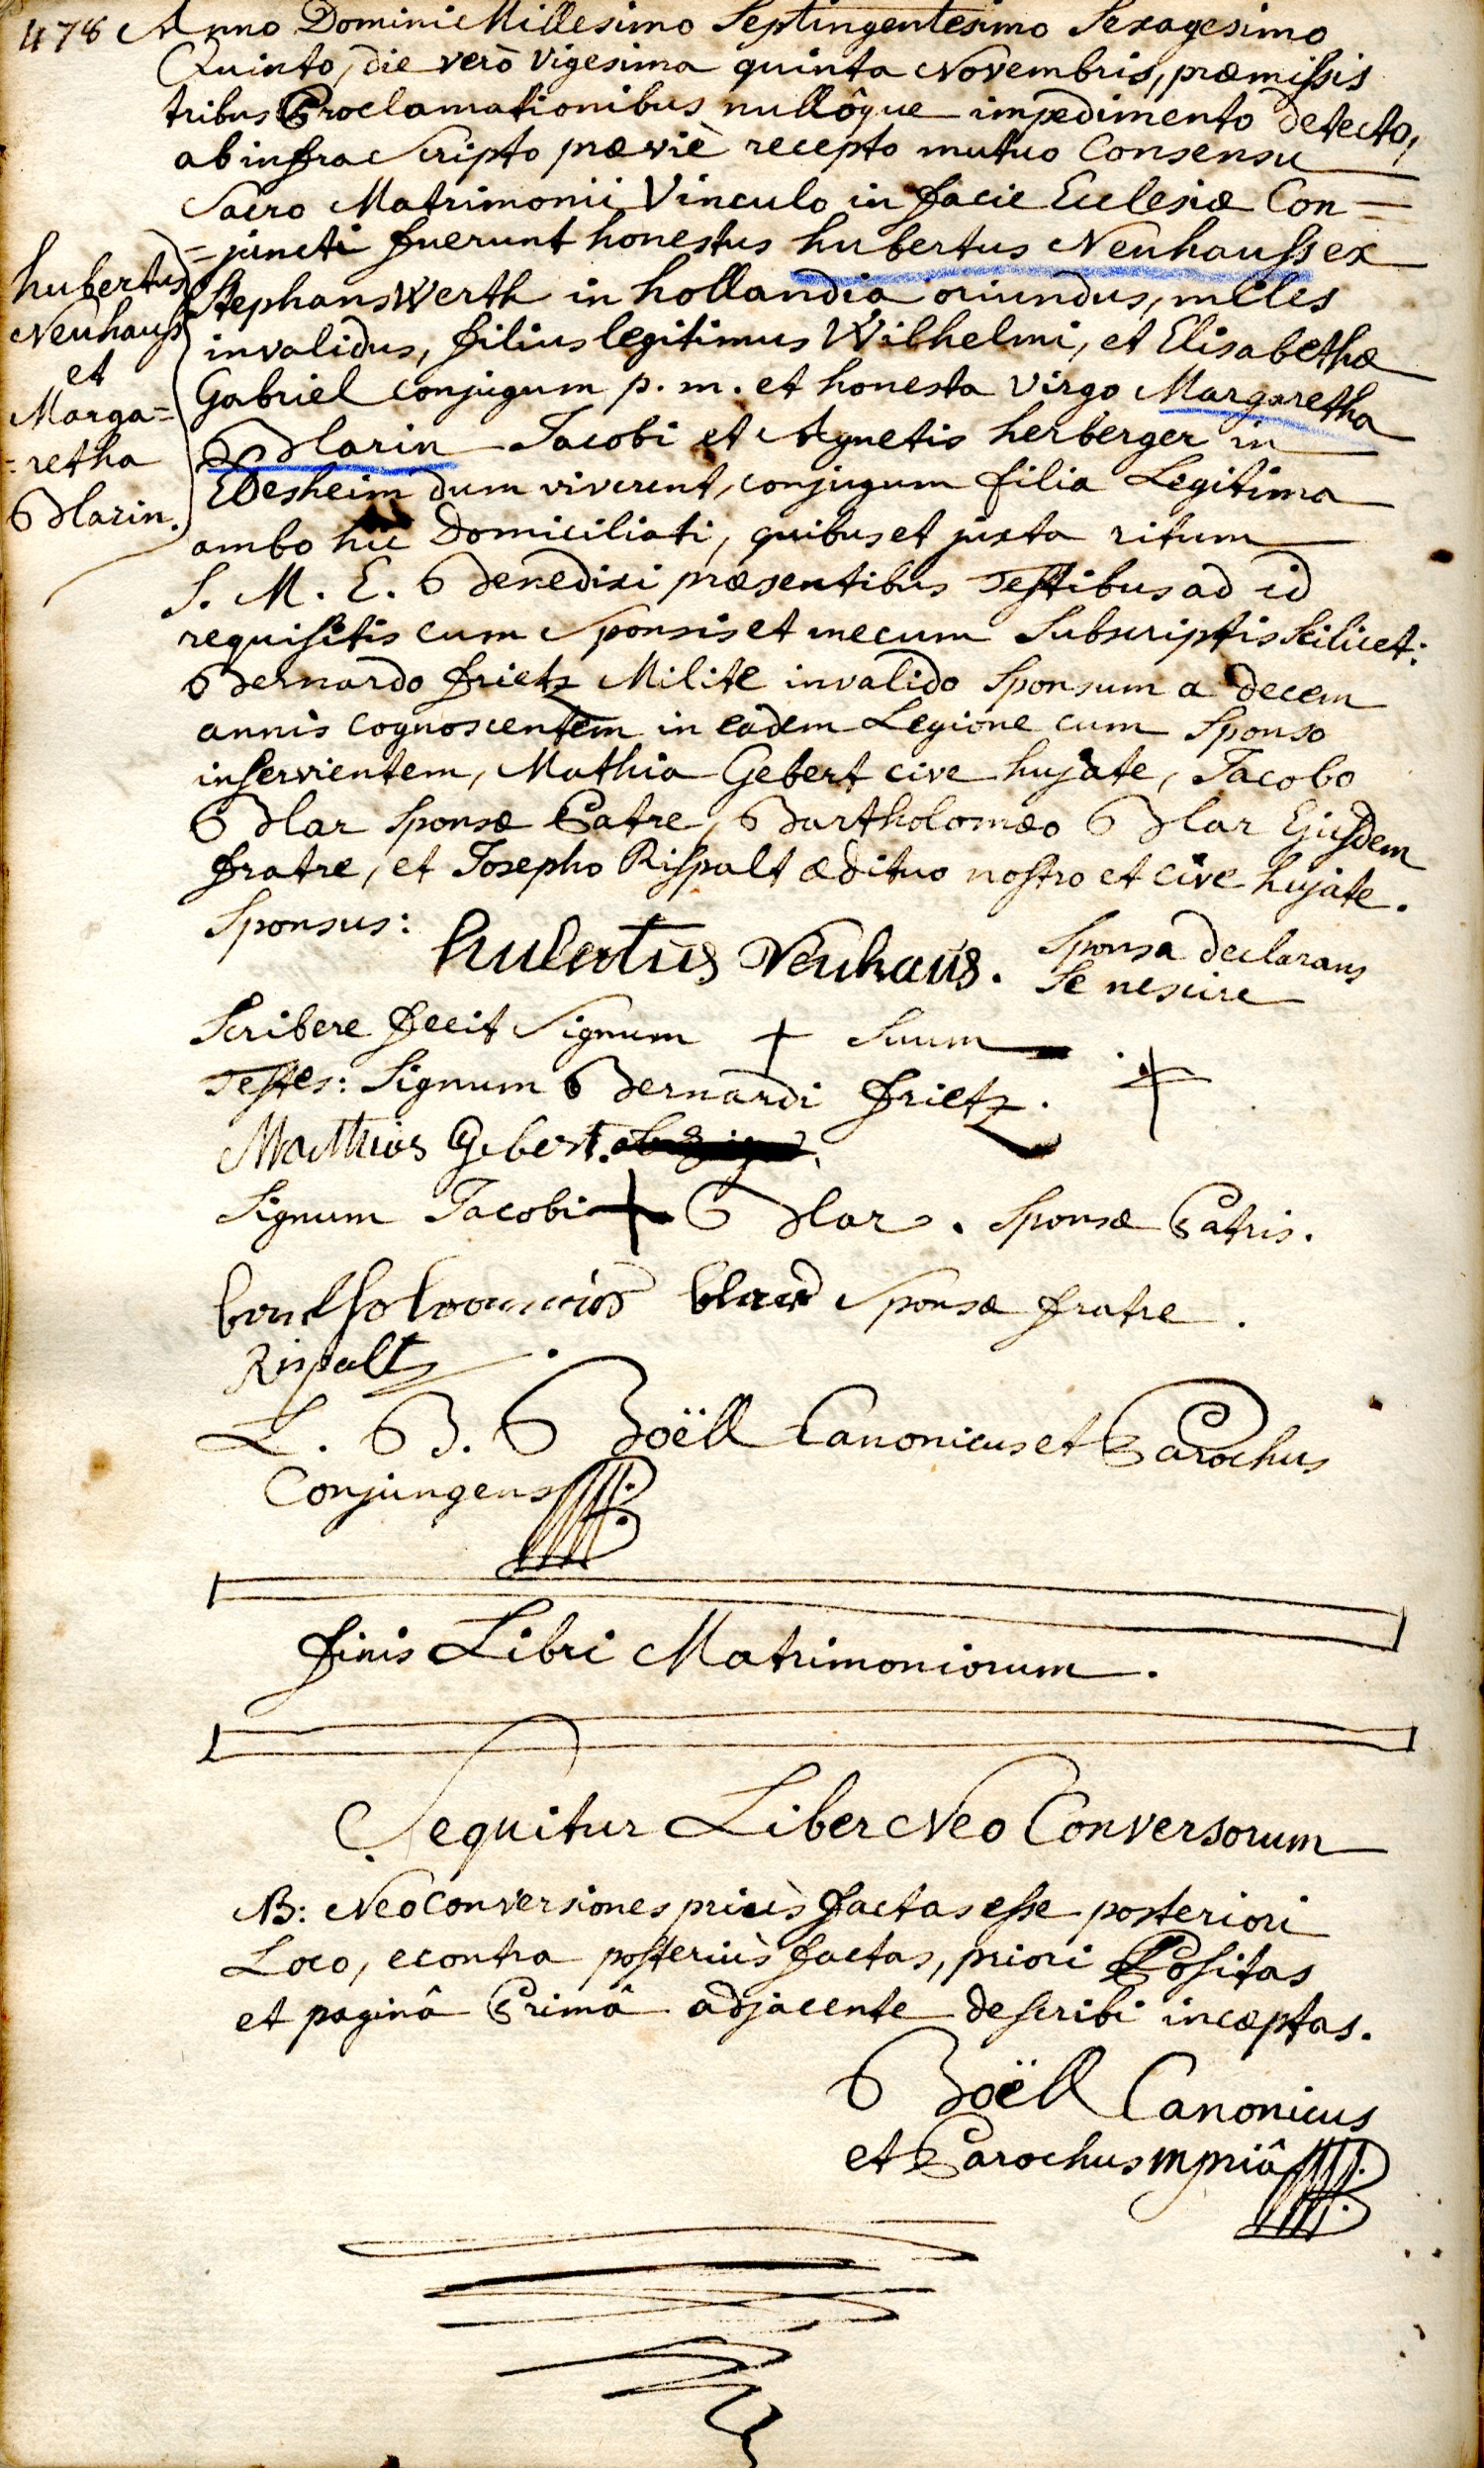 478 Anno Domini Millesimo Septingentesimo Sexagesimo
Quinto, die verò Vigesima quinta Novembris, præmissis
tribus Proclamationibus nullôque impedimento detecto,
ab infra Scripto præviè recepto mutuo Consensu
Sacro Matrimonii Vinculo in facie Ecclesiæ Con=
=juncti fuerunt honestus hubertus Neuhauss ex
Stephans Werth in hollandia oriundus, miles
invalidus, filius legitimus Wilhelmi, et Elisabethæ
Gabriel conjugum p. m. et honesta virgo Margaretha
Blarin Jacobi et Agnetis herberger in
Edesheim dum viverent, conjugum filia Legitima
ambo hic Domiciliati, quibus et juxta ritum
S. M. E. Benedixi præsentibus Testibus ad id
requisitis cum Sponsis et mecum Subscriptis Scilicet:
Bernardo frietz Milite invalido Sponsum a decem
annis cognoscentem in eâdem Legione cum Sponso
inservientem, Mathia Gebert cive hujate, Jacobo
Blar Sponsæ Patre, Bartholomæo Blar Ejusdem
fratre, et Josepho Rispalt ædituo nostro et cive hujate.
hubertus
Neuhauss
et
Marga=
=retha
Blarin.
Sponsus: hubertus Neuhaus. Sponsa declarans
Se nescire
Scribere fecit Signum + Suum
Testes: Signum Bernardi frietz. +
Matthias Gebert.
Signum Jacobi + Blar. Sponsæ Patris.
bartholomæus blar Sponsæ fratre.
Rispalt
L. B. Boëll Canonicus et Parochus
Conjungens
finis Libri Matrimoniorum.
Sequitur Liber Neo Conversorum
NB: Neo conversiones priùs factas esse posteriori
Loco, econtra posteriùs factas, priori Positas
et paginâ Primâ adjacente describi incæptas.
Boëll Canonicus
et Parochus mpriâ